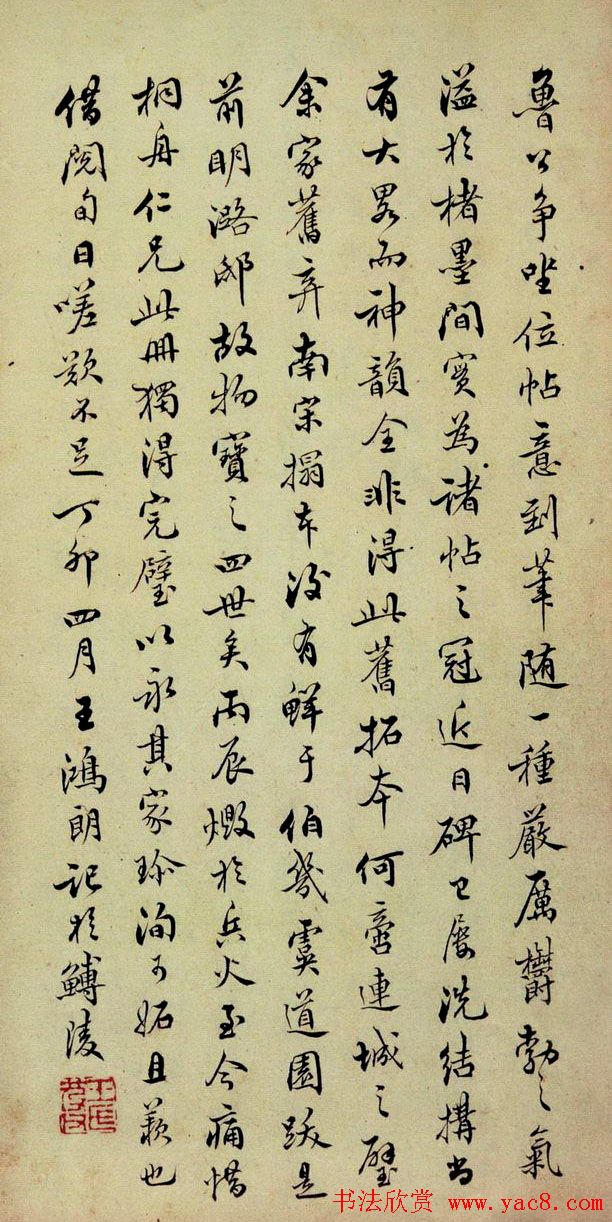 魯公争坐位帖意到筆随一種嚴厲欝勃之氣
溢於楮墨間實為諸帖之冠近日碑已屡洗結搆尚
有大畧而神韻全非得此舊拓本何啻連城之璧
余家舊弆南宋搨本後有鮮于伯幾虞道園跋是
前明潞邸故物寶之四世矣丙辰燬於兵火至今痛惜
桐舟仁兄此册獨得完璧以永其家珎洵可妬且羨也
借閱旬日嗟歎不足丁卯四月王鴻朗記於鱄陵
书法欣赏 www.yac8.com